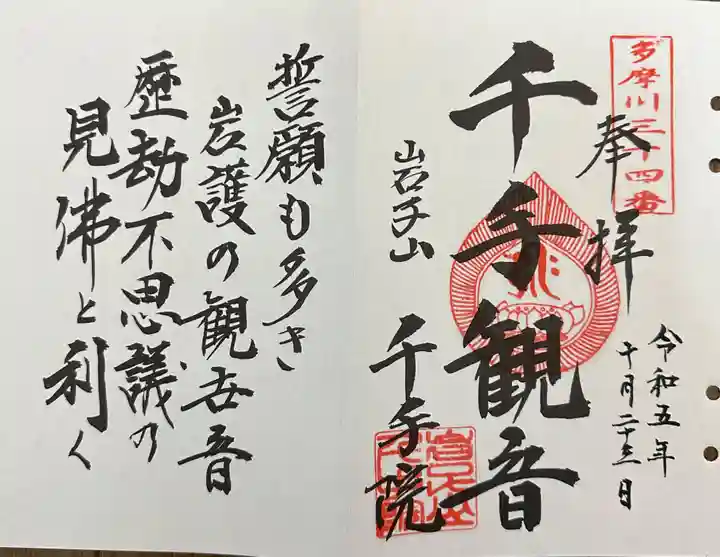 多摩川三十四番
奉拝
令和五年
十月二十三日
千手観音
千手院
誓願も多き
岩護の観世音
歴劫不思議の
見佛と利く